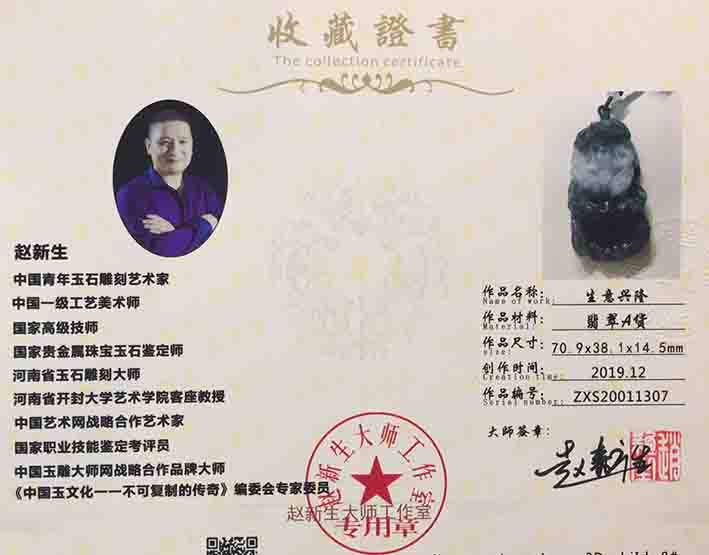 收藏證書
The collection certificate
赵新生
中国青年玉石雕刻艺术家
中国一级工艺美术师
国家高级技师
国家贵金属珠宝玉石鉴定师
河南省玉石雕刻大师
河南省开封大学艺术学院客座教授
中国艺术网战略合作艺术家
国家职业技能鉴定考评员
中国玉雕大师网战略合作品牌大师
《中国玉文化——不可复制的传奇》编委会专家委员
作品名称: 生意兴隆
Name of work:
作品材料: 翡翠A货
Material:
作品尺寸: 70.9x38.1x14.5mm
size:
创作时间: 2019.12
Creation time:
作品编号: ZXS20011307
Serial number:
大师签章:
赵新生
赵新生大师工作室
专用章
赵新生大师工作室